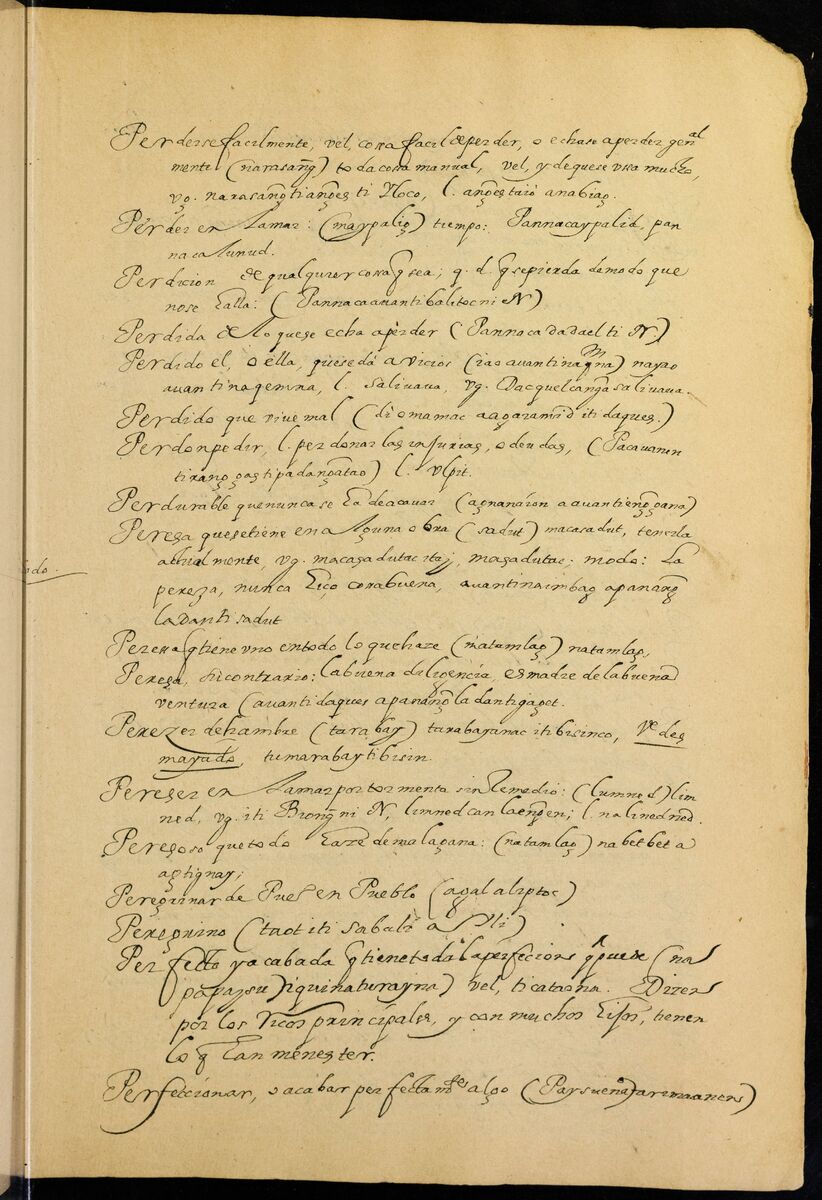 Perderse facilmente, vel, cosa facil de perder, o echase a perder gen.al
mente (narasang̃) toda cosa manual, vel, y de que se usa mucho,
vg. narasang̃ ti ang̃es ti Yloco, l. ang̃es taió a nabiag.
Pérder en la mar: (maypalig) tiempo: Pannacaypalid, pan
nacalunud.
Perdicion de qualquier cosa q̃ sea; q. d. q̃ se pierda de modo que
no se halla: (Pannacaavanti balitoc ni N)
Perdida de lo que se echa a pèrder (Pannacadadael ti N)
Perdido el, o ella, que se dà a vicios (iao avan tinagmna) nayao
avan tinagemna, l. salivava, vg. Dacquel cang̃a salivava.
Perdido que vive mal (di omamac a agaramid iti daques.)
Perdon pedir, l. perdonar las injurias, o deudas, (Pacavanen
ti rang̃gas ti padang̃atao) l. ulpit.
Perdurable que nunca se ha de acavar (agnanáion a avan tieng̃gana)
Pereça que se tiene en alguna obra (sadut) macasadut, tenerla
actualmente, vg. macasadutac itaj, masadutac; modo: La
pereza, nunca hiço cosa buena, avan tinaimbag a panang̃
la dan ti sadut
Pereza q̃ tiene uno en todo lo que haze (natamlag) natamlag,
Pereça, su contrario: la buena diligencia, es madre de la buena
ventura (avan ti daques a panang̃la dan ti gaget.
Perezer de hambre (tarabay) tarabayanac iti bisinco, Ve des
mayado, tumarabay ti bisin.
Pereçer en la mar por tormenta sin remedio: (lumned) lim
ned, vg. iti Biong̃ ni N, limned can laeng̃en; l. nalinednèd.
Pereçoso que todo haze de mala gana: (natamlag) nabetbet a
agtignay;
Peregrinar de Pueb. en Pueblo (agalaliptoc)
Peregrino (tao iti sabali a Yli)
Perfecto y acabada q̃ tiene toda la perfecions q̃ puede (na
papaysu) iquinaturayna) vel, ti cataona. Dizen
por los Ricos principales, y con muchos hijos, tienen
lo q̃ han menester.
Perfeccionar, o acabar perfectam.te algo (Paysuen
ado.